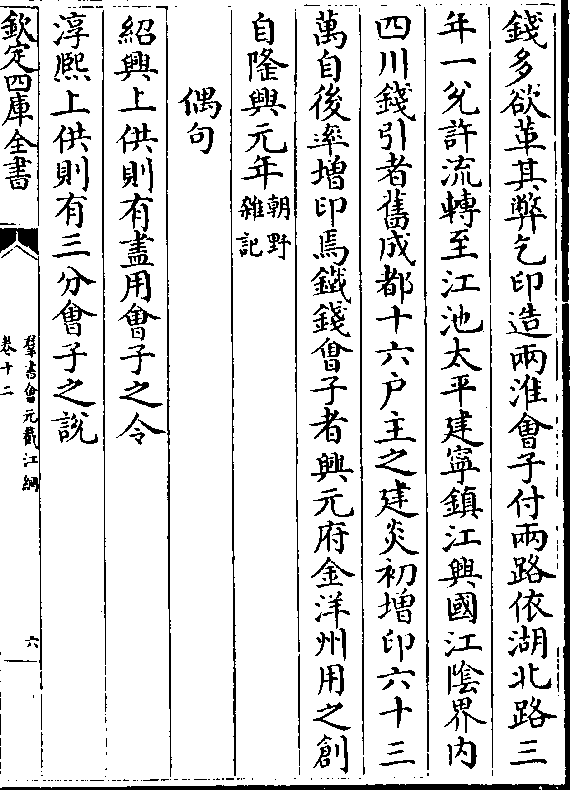 錢多欲革其弊乞印造兩淮會子付兩路依湖北路三
年一兌許流轉至江池太平建寧鎮江興國江隂界内
四川錢引者舊成都十六户主之建炎初增印六十三
萬自後率增印焉鐵錢會子者興元府金洋州用之創
自隆興元年朝野
雜記
偶句
紹興上供則有盡用會子之令
淳熈上供則有三分會子之說
欽定四庫全書
羣書會元截江網
卷十二
六